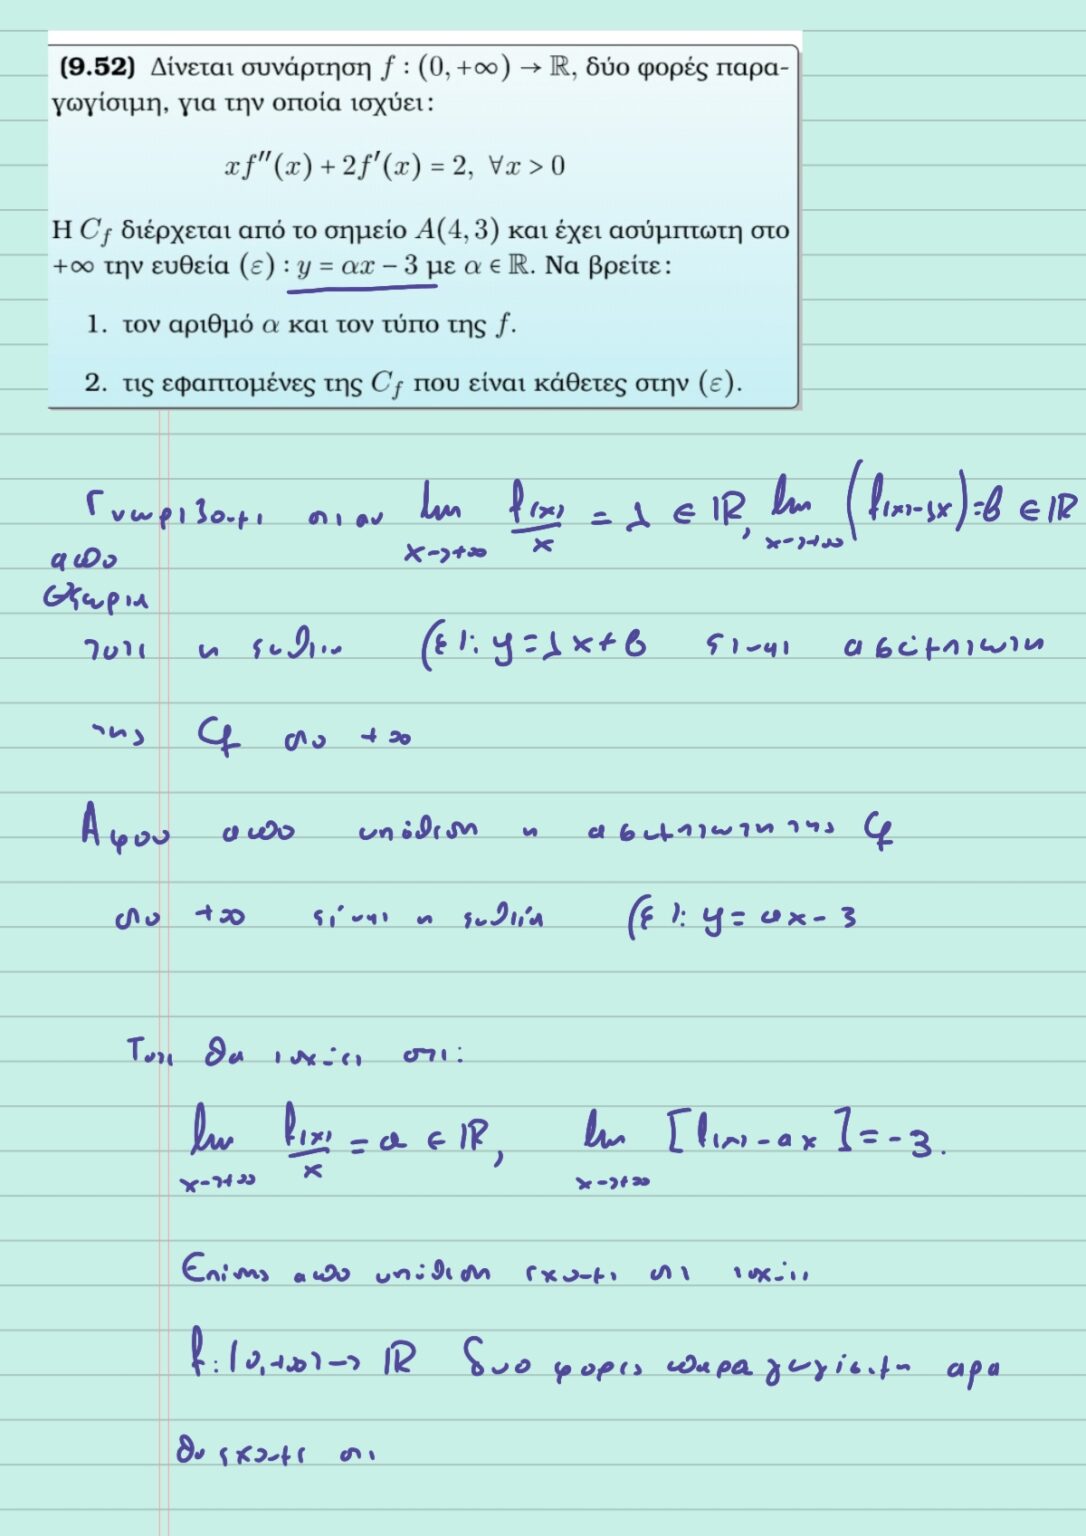 (9.52) Δίνεται συνάρτηση f : (0, +∞) → ℝ, δύο φορές παρα-
γωγίσιμη, για την οποία ισχύει:
xf''(x) + 2f'(x) = 2, ∀x > 0
Η C_f διέρχεται από το σημείο A(4, 3) και έχει ασύμπτωτη στο
+∞ την ευθεία (ε) : y = αx − 3 με α ∈ ℝ. Να βρείτε:
1. τον αριθμό α και τον τύπο της f.
2. τις εφαπτομένες της C_f που είναι κάθετες στην (ε).
Γνωριζουμε οτι αν lim x→+∞ f(x)/x = λ ∈ ℝ, lim x→+∞ (f(x)-λx)=β ∈ ℝ
απο
θεωρια
τοτε η ευθεια (ε): y=λx+β ειναι ασυμπτωτη
της Cf στο +∞
Αφου απο υπόθεση η ασυμπτωτη της Cf
στο +∞ είναι η ευθεία (ε): y=αx-3
Τοτε θα ισχύει οτι:
lim x→+∞ f(x)/x = α ∈ ℝ, lim x→+∞ [f(x)-αx]=-3.
Επίσης απο υπόθεση εχουμε οτι ισχύει
f:(0,+∞)→ℝ δυο φορες παραγωγίσιμη αρα
θα εχουμε οτι